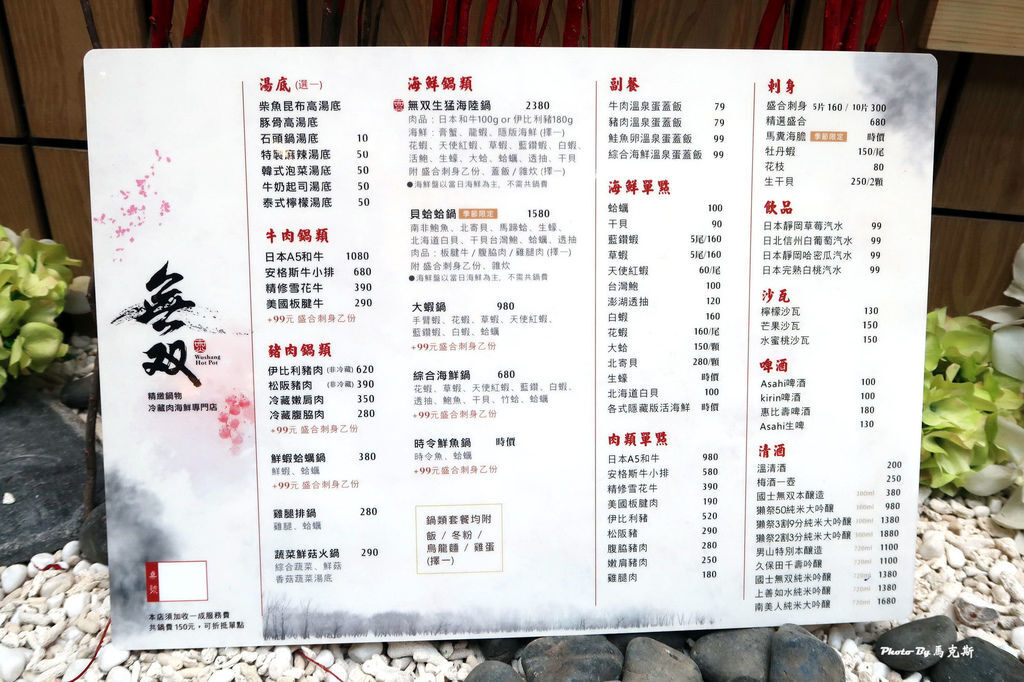 無双
Wushang
Hot Pot
精緻鍋物
冷藏肉海鮮專門店
桌號
本店須加收一成服務費
共鍋費150元，可折抵單點
湯底 (選一)
柴魚昆布高湯底
豚骨高湯底
石頭鍋湯底 10
特製麻辣湯底 50
韓式泡菜湯底 50
牛奶起司湯底 50
泰式檸檬湯底 50
牛肉鍋類
日本A5和牛 1080
安格斯牛小排 680
精修雪花牛 390
美國板腱牛 290
+99元 盛合刺身乙份
豬肉鍋類
伊比利豬肉 (非冷藏) 620
松阪豬肉 (非冷藏) 390
冷藏嫩肩肉 350
冷藏腹脇肉 280
+99元 盛合刺身乙份
鮮蝦蛤蠣鍋 380
鮮蝦、蛤蠣
+99元 盛合刺身乙份
雞腿排鍋 280
雞腿、蛤蠣
蔬菜鮮菇火鍋 290
綜合蔬菜、鮮菇
香菇蔬菜湯底
海鮮鍋類
無双生猛海陸鍋 2380
肉品：日本和牛100g or 伊比利豬180g
海鮮：膏蟹、龍蝦、隱版海鮮 (擇一)
花蝦、天使紅蝦、草蝦、藍鑽蝦、白蝦、
活鮑、生蠔、大蛤、蛤蠣、透抽、干貝
附 盛合刺身乙份、蓋飯 / 雜炊 (擇一)
●海鮮盤以當日海鮮為主，不需共鍋費
貝蛤蛤鍋 季節限定 1580
南非鮑魚、北寄貝、馬蹄蛤、生蠔、
北海道白貝、干貝台灣鮑、蛤蠣、透抽
肉品：板腱牛 / 腹脇肉 / 雞腿肉 (擇一)
附 盛合刺身乙份、雜炊
●海鮮盤以當日海鮮為主，不需共鍋費
大蝦鍋 980
手臂蝦、花蝦、草蝦、天使紅蝦、
藍鑽蝦、白蝦、蛤蠣
+99元 盛合刺身乙份
綜合海鮮鍋 680
花蝦、草蝦、天使紅蝦、藍鑽、白蝦、
透抽、鮑魚、干貝、竹蛤、蛤蠣
+99元 盛合刺身乙份
時令鮮魚鍋 時價
時令魚、蛤蠣
+99元 盛合刺身乙份
鍋類套餐均附
飯 / 冬粉 /
烏龍麵 / 雞蛋
(擇一)
副餐
牛肉溫泉蛋蓋飯 79
豬肉溫泉蛋蓋飯 79
鮭魚卵溫泉蛋蓋飯 99
綜合海鮮溫泉蛋蓋飯 99
海鮮單點
蛤蠣 100
干貝 90
藍鑽蝦 5尾/160
草蝦 5尾/160
天使紅蝦 60/尾
台灣鮑 100
澎湖透抽 120
白蝦 160
花蝦 160/尾
大蛤 150/顆
北寄貝 280/顆
生蠔 時價
北海道白貝 100
各式隱藏版活海鮮 時價
肉類單點
日本A5和牛 980
安格斯牛小排 580
精修雪花牛 390
美國板腱肉 190
伊比利豬 520
松阪豬 290
腹脇豬肉 280
嫩肩豬肉 250
雞腿肉 180
刺身
盛合刺身 5片160 / 10片300
精選盛合 680
馬糞海膽 季節限定 時價
牡丹蝦 150/尾
花枝 80
生干貝 250/2顆
飲品
日本靜岡草莓汽水 99
日北信州白葡萄汽水 99
日本靜岡哈密瓜汽水 99
日本完熟白桃汽水 99
沙瓦
檸檬沙瓦 130
芒果沙瓦 150
水蜜桃沙瓦 150
啤酒
Asahi啤酒 100
kirin啤酒 100
惠比壽啤酒 180
Asahi生啤 130
清酒
溫清酒 200
梅酒一壺 250
國士無双本釀造 300ml 380
獺祭50純米大吟釀 300ml 980
獺祭3割9分純米大吟釀 300ml 1380
獺祭2割3分純米大吟釀 300ml 1880
男山特別本釀造 720ml 1100
久保田千壽吟釀 720ml 1100
國士無双純米吟釀 720ml 1380
上善如水純米吟釀 720ml 1380
南美人純米大吟釀 720ml 1680
Photo By 馬克斯